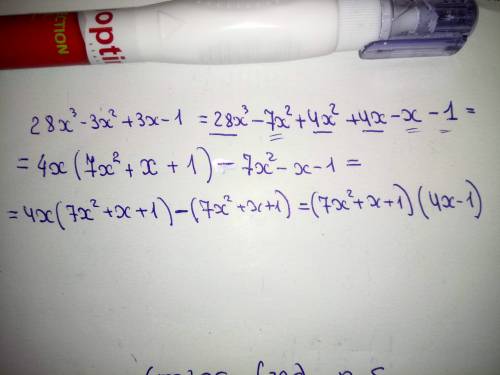 ECTION
opti
28x³ - 3x² + 3x - 1 = 28x³ - 7x² + 4x² + 4x - x - 1 =
= 4x(7x² + x + 1) - 7x² - x - 1 =
= 4x(7x² + x + 1) - (7x² + x + 1) = (7x² + x + 1)(4x - 1)